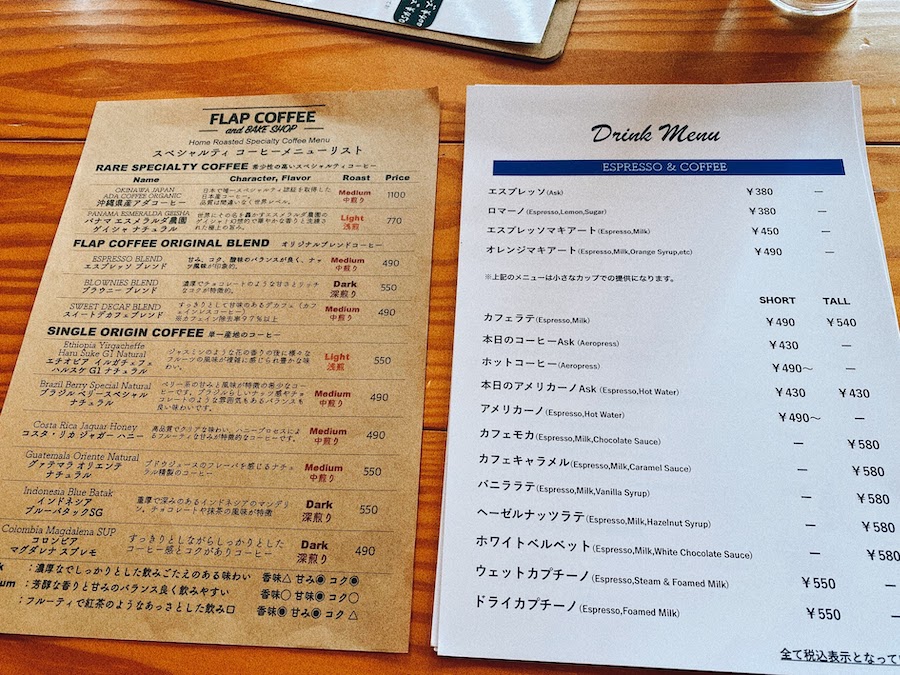 FLAP COFFEE
and BAKE SHOP
Home Roasted Specialty Coffee Menu
スペシャルティ コーヒーメニューリスト
RARE SPECIALTY COFFEE 希少性の高いスペシャルティコーヒー
Name Character, Flavor Roast Price
OKINAWA JAPAN
ADA COFFEE ORGANIC
沖縄県産アダコーヒー
日本で唯一スペシャルティ認証を取得した
日本産コーヒー。
品質は間違いなく世界レベル。
Medium
中煎り
1100
PANAMA ESMERALDA GEISHA
パナマ エスメラルダ農園
ゲイシャ ナチュラル
世界にその名を轟かすエスメラルダ農園の
ゲイシャ！幻想的で華やかな香りと洗練さ
れた極上の旨み。
Light
浅煎
770
FLAP COFFEE ORIGINAL BLEND オリジナルブレンドコーヒー
ESPRESSO BLEND
エスプレッソ ブレンド
甘み、コク、酸味のバランスが良く、ナッ
ツ風味が印象的。
Medium
中煎り
490
BLOWNIES BLEND
ブラウニー ブレンド
濃厚でチョコレートのような甘さとリッチ
なコクが特徴的。
Dark
深煎り
550
SWEET DECAF BLEND
スイートデカフェブレンド
すっきりとして甘味のあるデカフェ（カフ
ェインレスコーヒー）
※カフェイン除去率97%以上
Medium
中煎り
490
SINGLE ORIGIN COFFEE 単一産地のコーヒー
Ethiopia Yirgacheffe
Haru Suke G1 Natural
エチオピア イルガチェフェ
ハルスケ G1 ナチュラル
ジャスミンのような花の香りの後に様々な
フルーツの風味が複雑に感じられ豊かな味
わい。
Light
浅煎
550
Brazil Berry Special Natural
ブラジル ベリースペシャル
ナチュラル
ベリー系の甘みと風味が特徴の希少なコー
ヒーです。ブラジルらしいナッツ感やチョ
コレートのような雰囲気もあるバランスも
良い味わいです。
Medium
中煎り
490
Costa Rica Jaguar Honey
コスタ・リカ ジャガー ハニー
高品質でクリアな味わい。ハニープロセスによ
るフルーティな甘みが特徴的なコーヒーです。
Medium
中煎り
490
Guatemala Oriente Natural
グァテマラ オリエンテ
ナチュラル
ブドウジュースのフレーバを感じるナチュ
ラル精製のコーヒー
Medium
中煎り
550
Indonesia Blue Batak
インドネシア
ブルーバタックSG
重厚で深みのあるインドネシアのマンデリ
ン。チョコレートや抹茶の風味が特徴
Dark
深煎り
550
Colombia Magdalena SUP
コロンビア
マグダレナ スプレモ
すっきりとしながらしっかりとした
コーヒー感とコクがありコーヒー
Dark
深煎り
490
：濃厚なでしっかりとした飲みごたえのある味わい 香味△ 甘み◉ コク◉
：芳醇な香りと甘みのバランス良く飲みやすい 香味〇 甘味◉ コク〇
：フルーティで紅茶のようなあっさとした飲み口 香味◉ 甘み◉ コク △
Drink Menu
ESPRESSO & COFFEE
エスプレッソ(Ask) ¥380 —
ロマーノ(Espresso,Lemon,Sugar) ¥380 —
エスプレッソマキアート(Espresso,Milk) ¥450 —
オレンジマキアート(Espresso,Milk,Orange Syrup,etc) ¥490 —
※上記のメニューは小さなカップでの提供になります。
SHORT TALL
カフェラテ(Espresso,Milk) ¥490 ¥540
本日のコーヒーAsk (Aeropress) ¥430 —
ホットコーヒー(Aeropress) ¥490〜 —
本日のアメリカーノAsk (Espresso,Hot Water) ¥430 ¥430
アメリカーノ(Espresso,Hot Water) ¥490〜 —
カフェモカ(Espresso,Milk,Chocolate Sauce) — ¥580
カフェキャラメル(Espresso,Milk,Caramel Sauce) — ¥580
バニララテ(Espresso,Milk,Vanilla Syrup) — ¥580
ヘーゼルナッツラテ(Espresso,Milk,Hazelnut Syrup) — ¥580
ホワイトベルベット(Espresso,Milk,White Chocolate Sauce) — ¥580
ウェットカプチーノ(Espresso,Steam & Foamed Milk) ¥550 —
ドライカプチーノ(Espresso,Foamed Milk) ¥550 —
全て税込表示となって